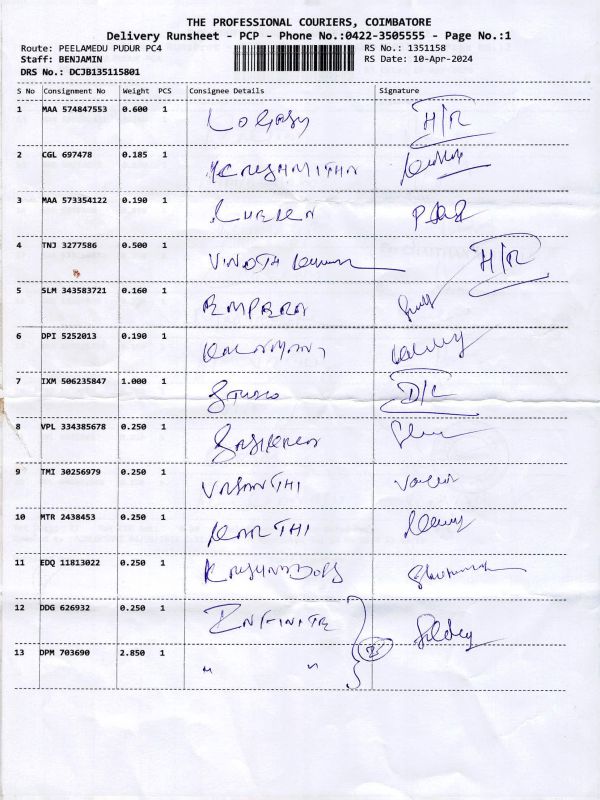 THE PROFESSIONAL COURIERS, COIMBATORE
Delivery Runsheet - PCP - Phone No.:0422-3505555 - Page No.:1
Route: PEELAMEDU PUDUR PC4 RS No.: 1351158
Staff: BENJAMIN RS Date: 10-Apr-2024
DRS No.: DCJB135115801
S No Consignment No Weight PCS Consignee Details Signature
1 MAA 574847553 0.600 1 H/R
2 CGL 697478 0.185 1
3 MAA 573354122 0.190 1
4 TNJ 3277586 0.500 1 VINOTH H/R
5 SLM 343583721 0.160 1
6 DPI 5252013 0.190 1
7 IXM 506235847 1.000 1 D/L
8 VPL 334385678 0.250 1
9 TMI 30256979 0.250 1 VASANTHI
10 MTR 2438453 0.250 1 KARTHI
11 EDQ 11813022 0.250 1
12 DDG 626932 0.250 1 INFINITE
13 DPM 703690 2.850 1 " "